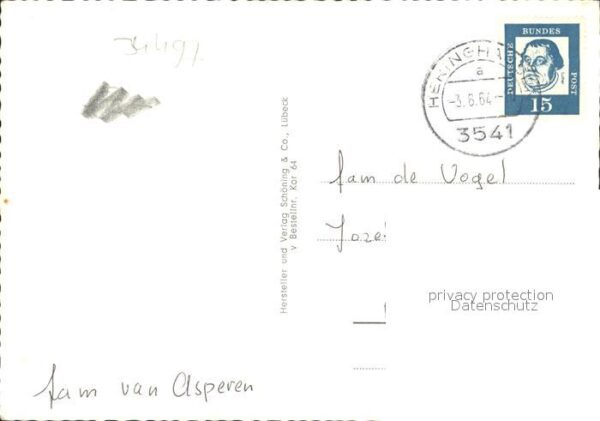 34491
DEUTSCHE
BUNDES
POST
15
HERINGHA
a
-3.6.64-
3541
Hersteller und Verlag Schöning & Co., Lübeck
V Bestellnr. Kor 64
fam de Vogel
Joze
privacy protection
Datenschutz
fam van Asperen